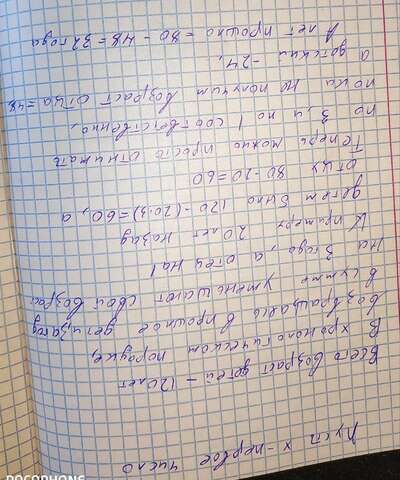 Пуст x - первое число
Всего возраст детей - 120 лет
В хронологическом порядке,
возвращаясь в прошлое дети за год
в сумме уменьшают свой возраст
на 3 года, а отец на 1
К примеру 20 лет назад
детям было 120 - (20·3) = 60, а
отцу 80 - 20 = 60
Теперь можно просто отнимать
по 3, и по 1 соответственно,
пока не получим возраст отца = 48
а детский - 24,
А лет прошло = 80 - 48 = 32 года
POCOPHONE